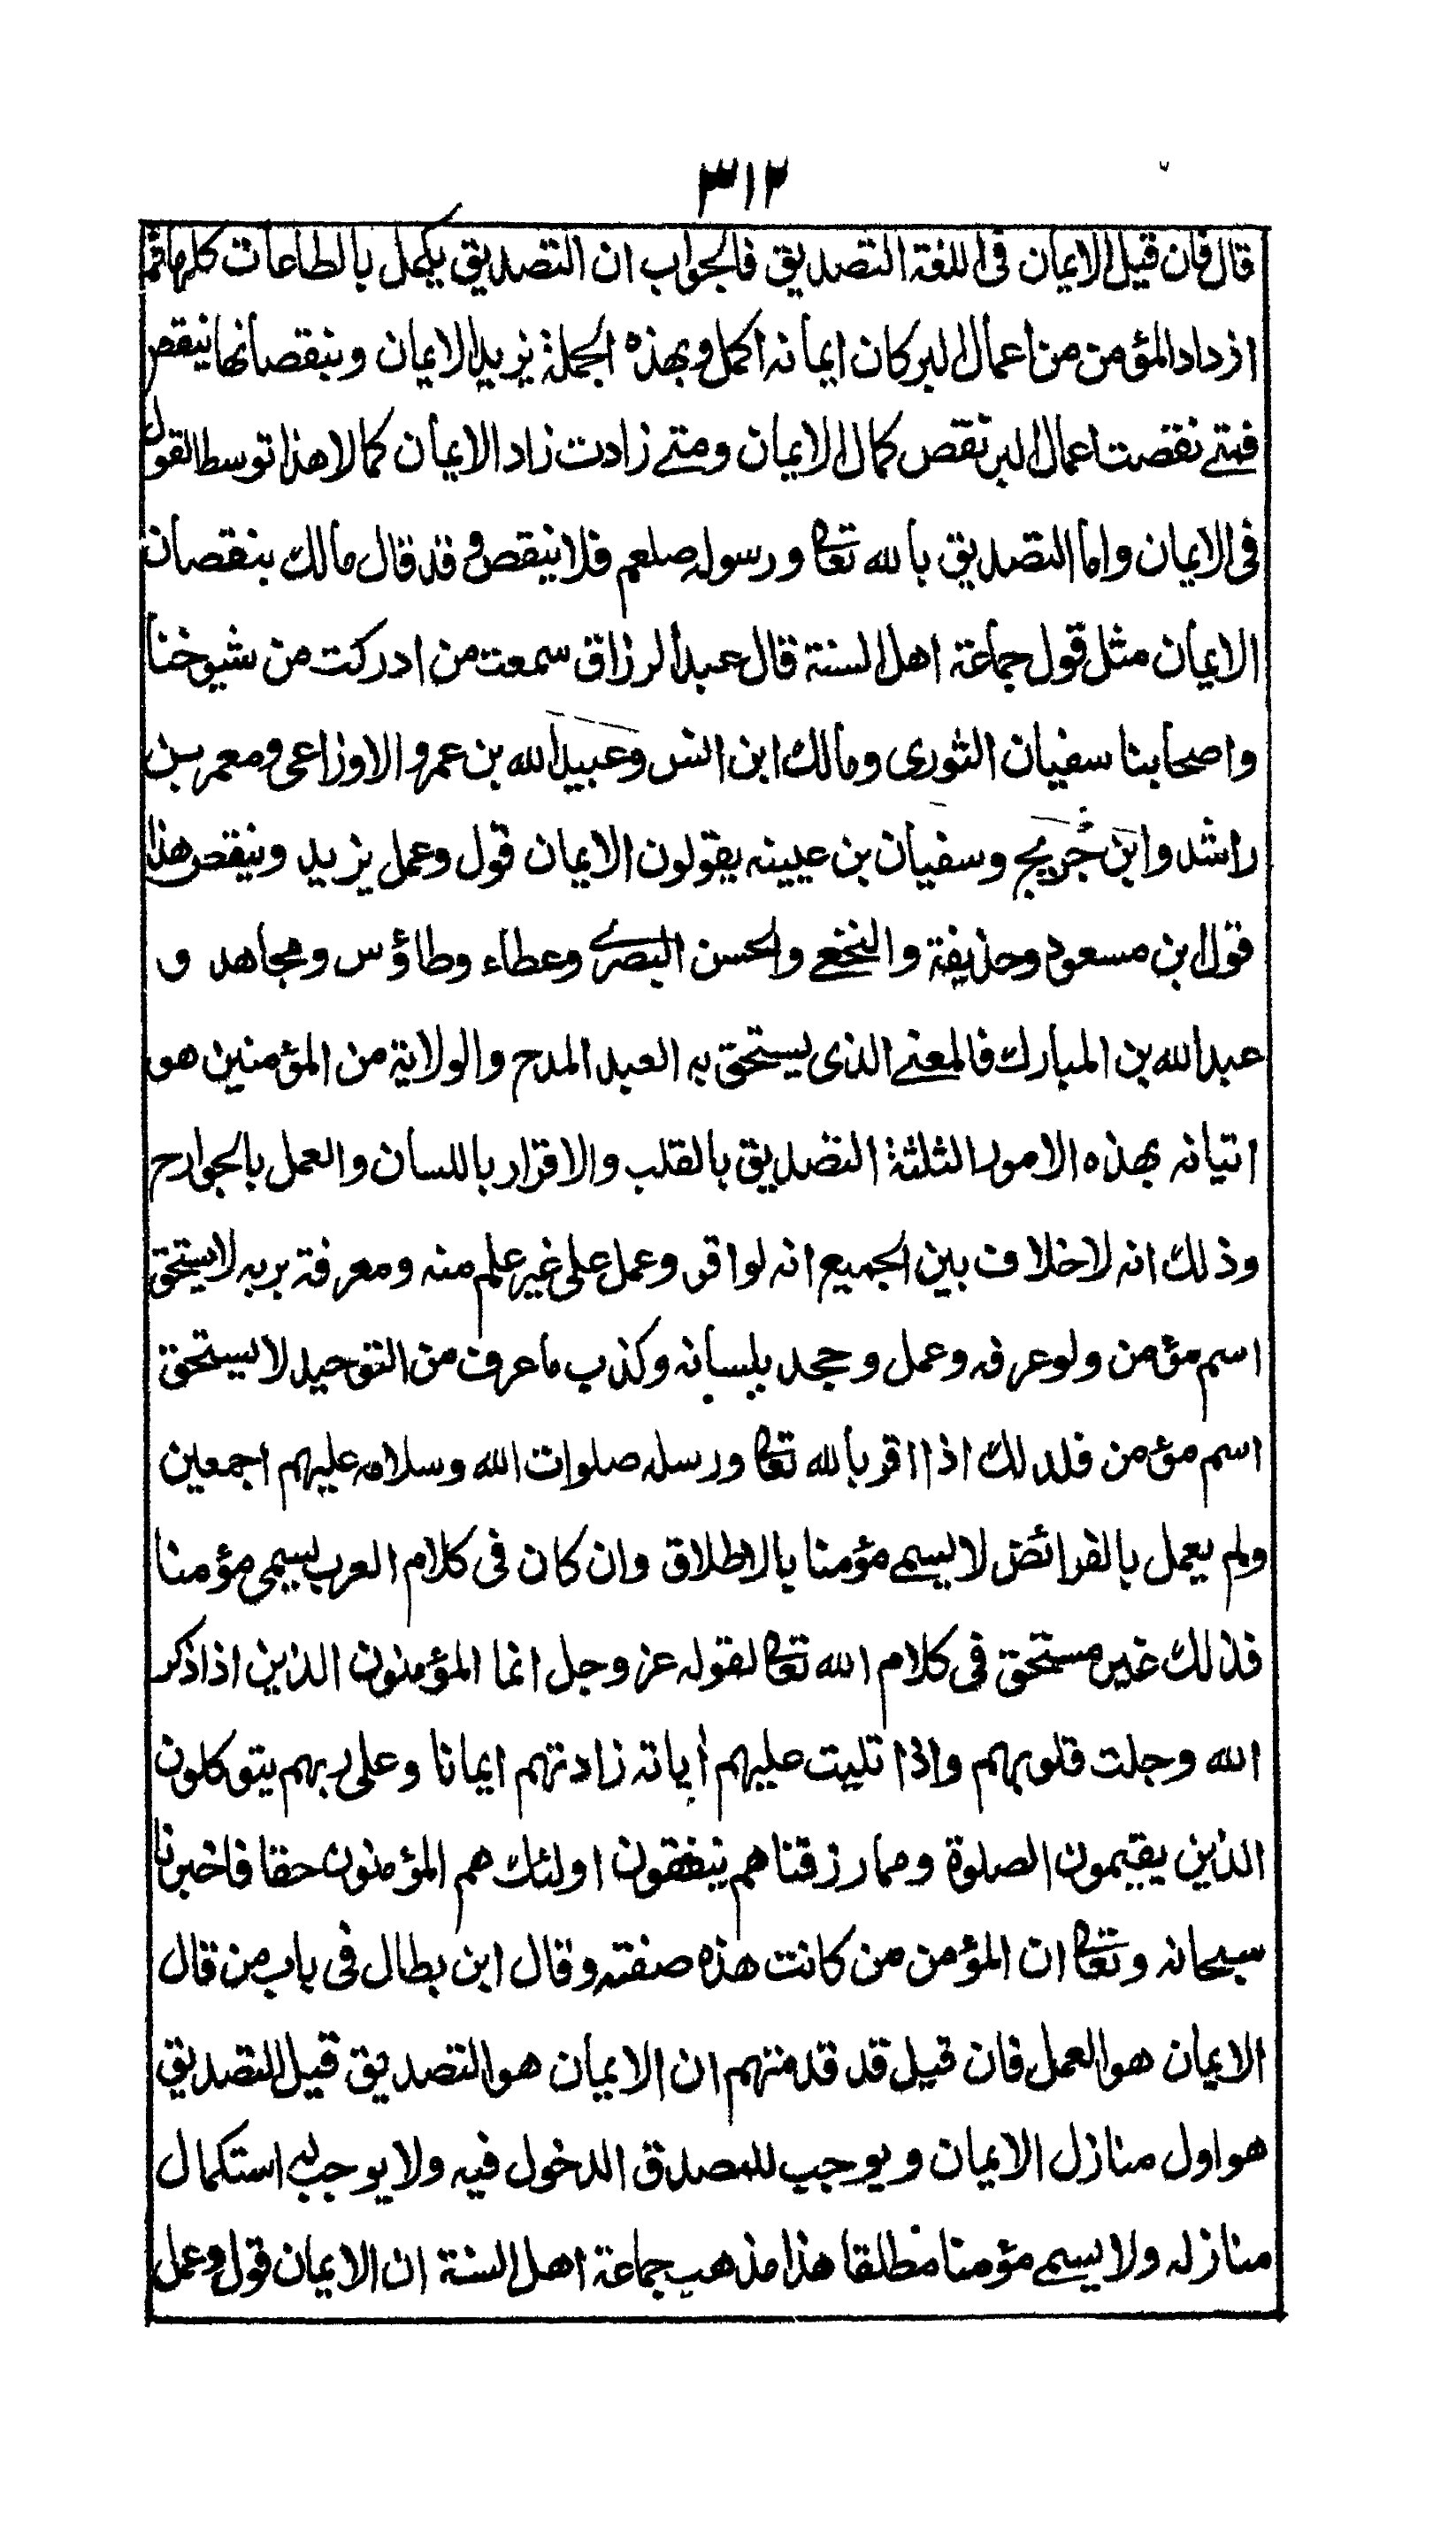 ٣١٢
قال فان قيل الايمان فى اللغة التصديق فالجواب ان التصديق يكمل بالطاعات كلها فما
ازداد المؤمن من اعمال البر كان ايمانه اكمل وبهذه الجملة يزيد الايمان وبنقصانها ينقص
فمتے نقصت اعمال البر نقص كمال الايمان ومتے زادت زاد الايمان كمالا هذا توسط القول
فى الايمان واما التصديق بالله تعالى ورسوله صلعم فلا ينقص وقد قال مالك بنقصان
الايمان مثل قول جماعة اهل السنة قال عبد الرزاق سمعت من ادركت من شيوخنا
واصحابنا سفيان الثورى ومالك ابن انس وعبيد الله بن عمرو الاوزاعى ومعمر بن
راشد وابن جريج وسفيان بن عيينه يقولون الايمان قول وعمل يزيد وينقص هذا
قول ابن مسعود وحذيفة والنخعے والحسن البصرے وعطاء وطاؤس ومجاهد و
عبد الله بن المبارك فالمعنے الذى يستحق به العبد المدح والولاية من المؤمنين هو
اتيانه بهذه الامور الثلثة التصديق بالقلب والاقرار باللسان والعمل بالجوارح
وذلك انه لا خلاف بين الجميع انه لو اقر وعمل على غير علم منه ومعرفة بربه لا يستحق
اسم مؤمن ولو عرفه وعمل وجحد بلسانه وكذب ما عرف من التوحيد لا يستحق
اسم مؤمن فلدلك اذا اقر بالله تعالى ورسله صلوات الله وسلامه عليهم اجمعين
ولم يعمل بالفرائض لا يسمے مؤمنا بالاطلاق وان كان فى كلام العرب يسمى مؤمنا
فذلك غير مستحق فى كلام الله تعالى لقوله عز وجل انما المؤمنون الذين اذا ذكر
الله وجلت قلوبهم واذا تليت عليهم اياته زادتهم ايمانا وعلى ربهم يتوكلون
الذين يقيمون الصلوة ومما رزقناهم ينفقون اولئك هم المؤمنون حقا فاخبرنا
سبحانه وتعالى ان المؤمن من كانت هذه صفته وقال ابن بطال فى باب من قال
الايمان هو العمل فان قيل قد قدمتهم ان الايمان هو التصديق قيل التصديق
هو اول منازل الايمان ويوجب للمصدق الدخول فيه ولا يوجب له استكمال
منازله ولا يسمے مؤمنا مطلقا هذا مذهب جماعة اهل السنة ان الايمان قول وعمل